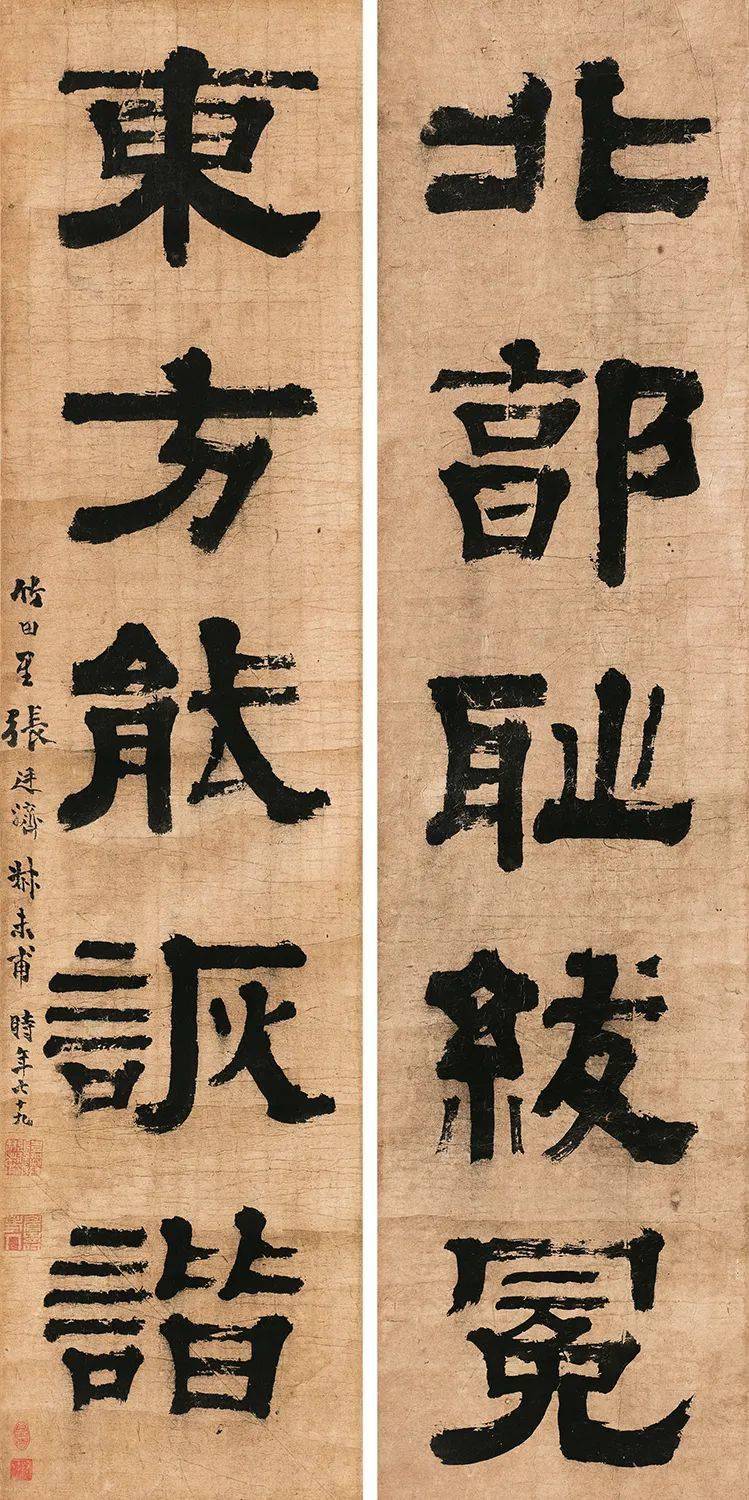 北部耻紱冕
東方能詼諧
竹田里張廷濟叔未甫時年七十九